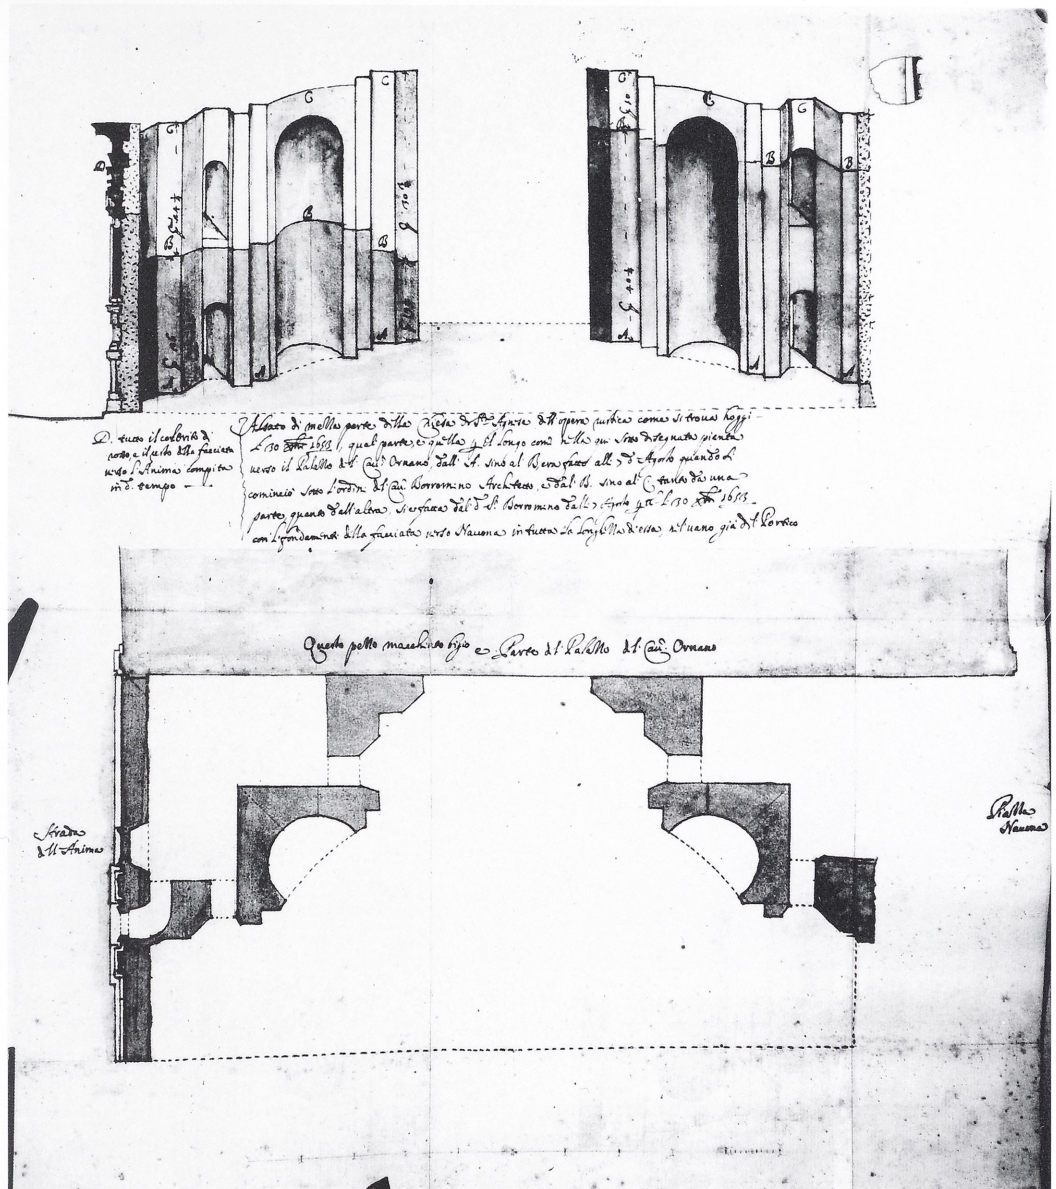 C
C
C
C
C
C
D
B
B
B
B
B
B
A
A
A
A
A
A
D. tutto il colorito di
rosso, e il resto della facciata
verso l'Anima compita
in d.° tempo
Alzato di mezza parte della Chiesa di S.ta Agnese dell'opera rustica come si trova hoggi
li 30 Xbre 1653, qual parte, e quella p. il longo come nella qui sotto disegnata pianta
verso il Palazzo del Cau. Ornano, dall' A. sino al B era fatto alli 7 d'Agosto quando si
cominciò sotto l'ordini del Cau. Borromino Architetto, e dal B. sino al C tanto da una
parte, quanto dall'altra, si è fatta dal d. S. Borromino dalli 7 Agosto li 30 Xbre 1653.
con li fondamenti della facciata verso Nauona in tutta la longhezza d'essa, nel uano già del Portico
Questo pezzo macchiato bigio e Parte del Palazzo del Cau. Ornano
Strada
dell'Anima
Piazza
Nauona